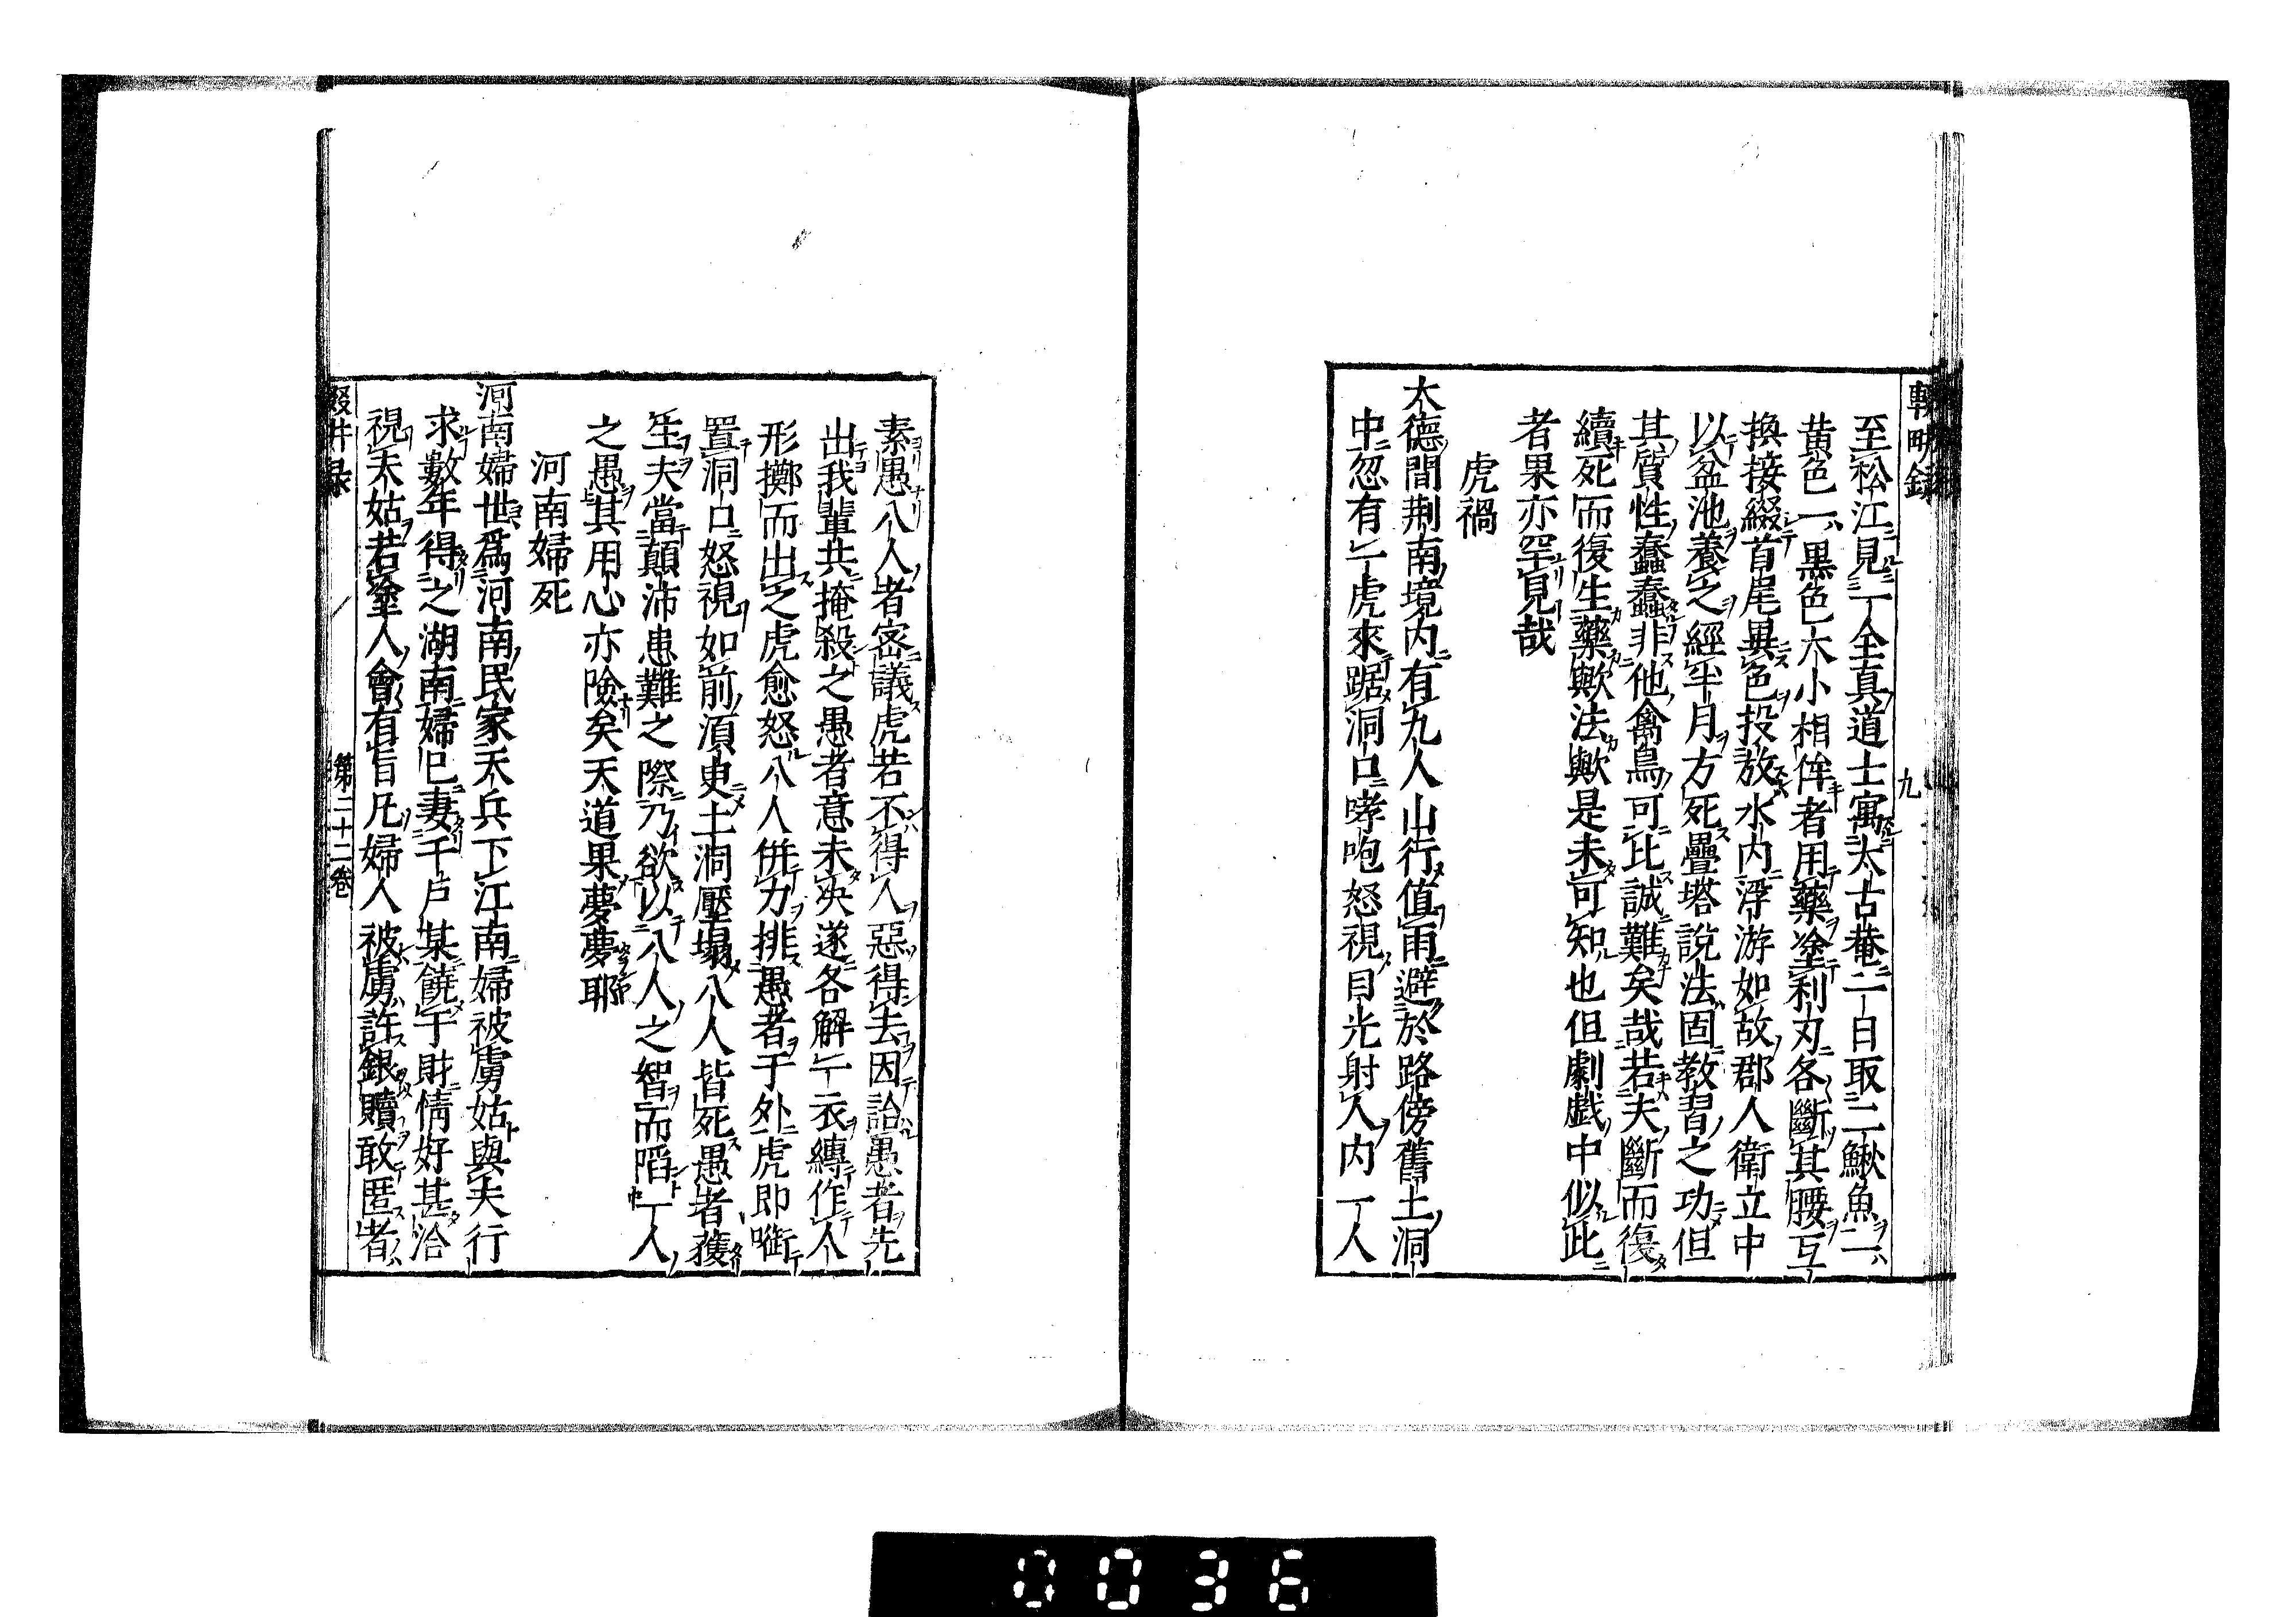 輟畊錄 九
至松江見一全真道士寓太古菴一日取二鰍魚一
黃色一黑色大小相侔者用藥塗利刃各斷其腰互
換接綴首尾異色投放水内浮游如故郡人衛立中
以盆池養之經半月方死疊塔說法固教習之功但
其質性蠢蠢非他禽鳥可比誠難矣哉若夫斷而復
續死而復生藥歟法歟是未可知也但劇戲中似此
者果亦罕見哉
虎禍
大德間荆南境内有九人山行值雨避於路傍舊土洞
中忽有一虎來踞洞口哮咆怒視目光射人内一人
素愚八人者密議虎若不得人惡得去因詒愚者先
出我輩共掩殺之愚者意未决遂各解一衣縛作人
形擲而出之虎愈怒八人併力排愚者于外虎即啣
置洞口怒視如前須史土洞壓塌八人皆死愚者獲
生夫當顛沛患難之際乃欲以八人之智而陷一人
之愚其用心亦險矣天道果夢夢耶
河南婦死
河南婦世爲河南民家天兵下江南婦被虜姑與夫行
求數年得之湖南婦已妻千户某饒于財情好甚洽
視夫姑若塗人會有旨凡婦人被虜許銀贖敢匿者
輟畊录 第二十二卷
0036